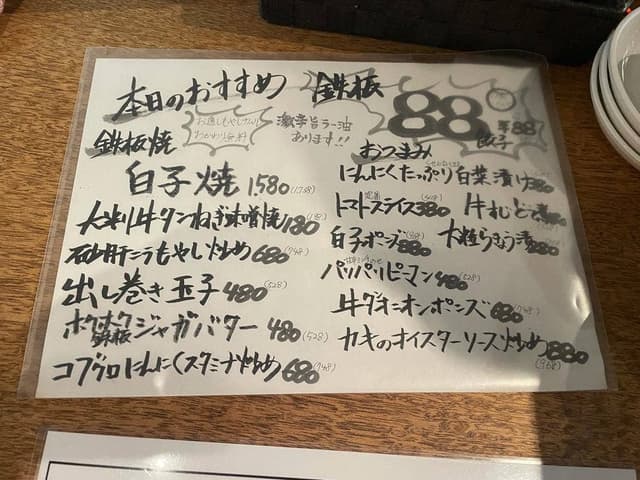 本日のおすすめ 鉄板
88
餃子 ¥88
激辛旨ラー油
あります!!
鉄板焼
白子焼 1,580(1,738)
大判牛タンねぎ味噌焼 1,180
砂肝ニラもやし炒め 680(748)
出し巻き玉子 480(528)
ホクホク鉄板ジャガバター 480(528)
コブクロにんにくスタミナ炒め 680(748)
おつまみ
にんにくたっぷり白菜漬け 380
トマトスライス 380
白子ポン酢 880
大粒らっきょう漬 280
パリパリピーマン 480(528)
牛ダオニオンポンズ 680(748)
カキのオイスターソース炒め 880(968)